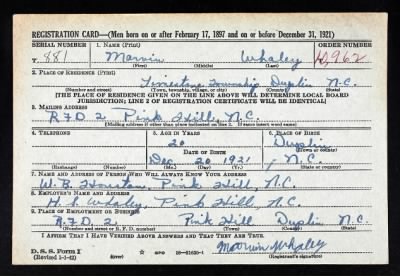 REGISTRATION CARD—(Men born on or after February 17, 1897 and on or before December 31, 1921)
SERIAL NUMBER 1. NAME (Print) ORDER NUMBER
T 881 Marvin Whaley 10,962
(First) (Middle) (Last)
2. PLACE OF RESIDENCE (Print)
Limestone Township Duplin N.C.
(Number and street) (Town, township, village, or city) (County) (State)
[THE PLACE OF RESIDENCE GIVEN ON THE LINE ABOVE WILL DETERMINE LOCAL BOARD
JURISDICTION; LINE 2 OF REGISTRATION CERTIFICATE WILL BE IDENTICAL]
3. MAILING ADDRESS
R.F.D. 2 Pink Hill, N.C.
[Mailing address if other than place indicated on line 2. If same insert word same]
4. TELEPHONE 5. AGE IN YEARS 6. PLACE OF BIRTH
20 Duplin
DATE OF BIRTH (Town or county)
Dec 20, 1921 N.C.
(Exchange) (Number) (Mo.) (Day) (Yr.) (State or country)
7. NAME AND ADDRESS OF PERSON WHO WILL ALWAYS KNOW YOUR ADDRESS
W. B. Houston, Pink Hill, N.C.
8. EMPLOYER'S NAME AND ADDRESS
H. S. Whaley, Pink Hill, N.C.
9. PLACE OF EMPLOYMENT OR BUSINESS
R.F.D. 2 Pink Hill Duplin N.C.
(Number and street or R. F. D. number) (Town) (County) (State)
I AFFIRM THAT I HAVE VERIFIED ABOVE ANSWERS AND THAT THEY ARE TRUE.
Marvin Whaley
D. S. S. Form 1
(Revised 1-1-42) (over) GPO 16—21630-1 (Registrant's signature)